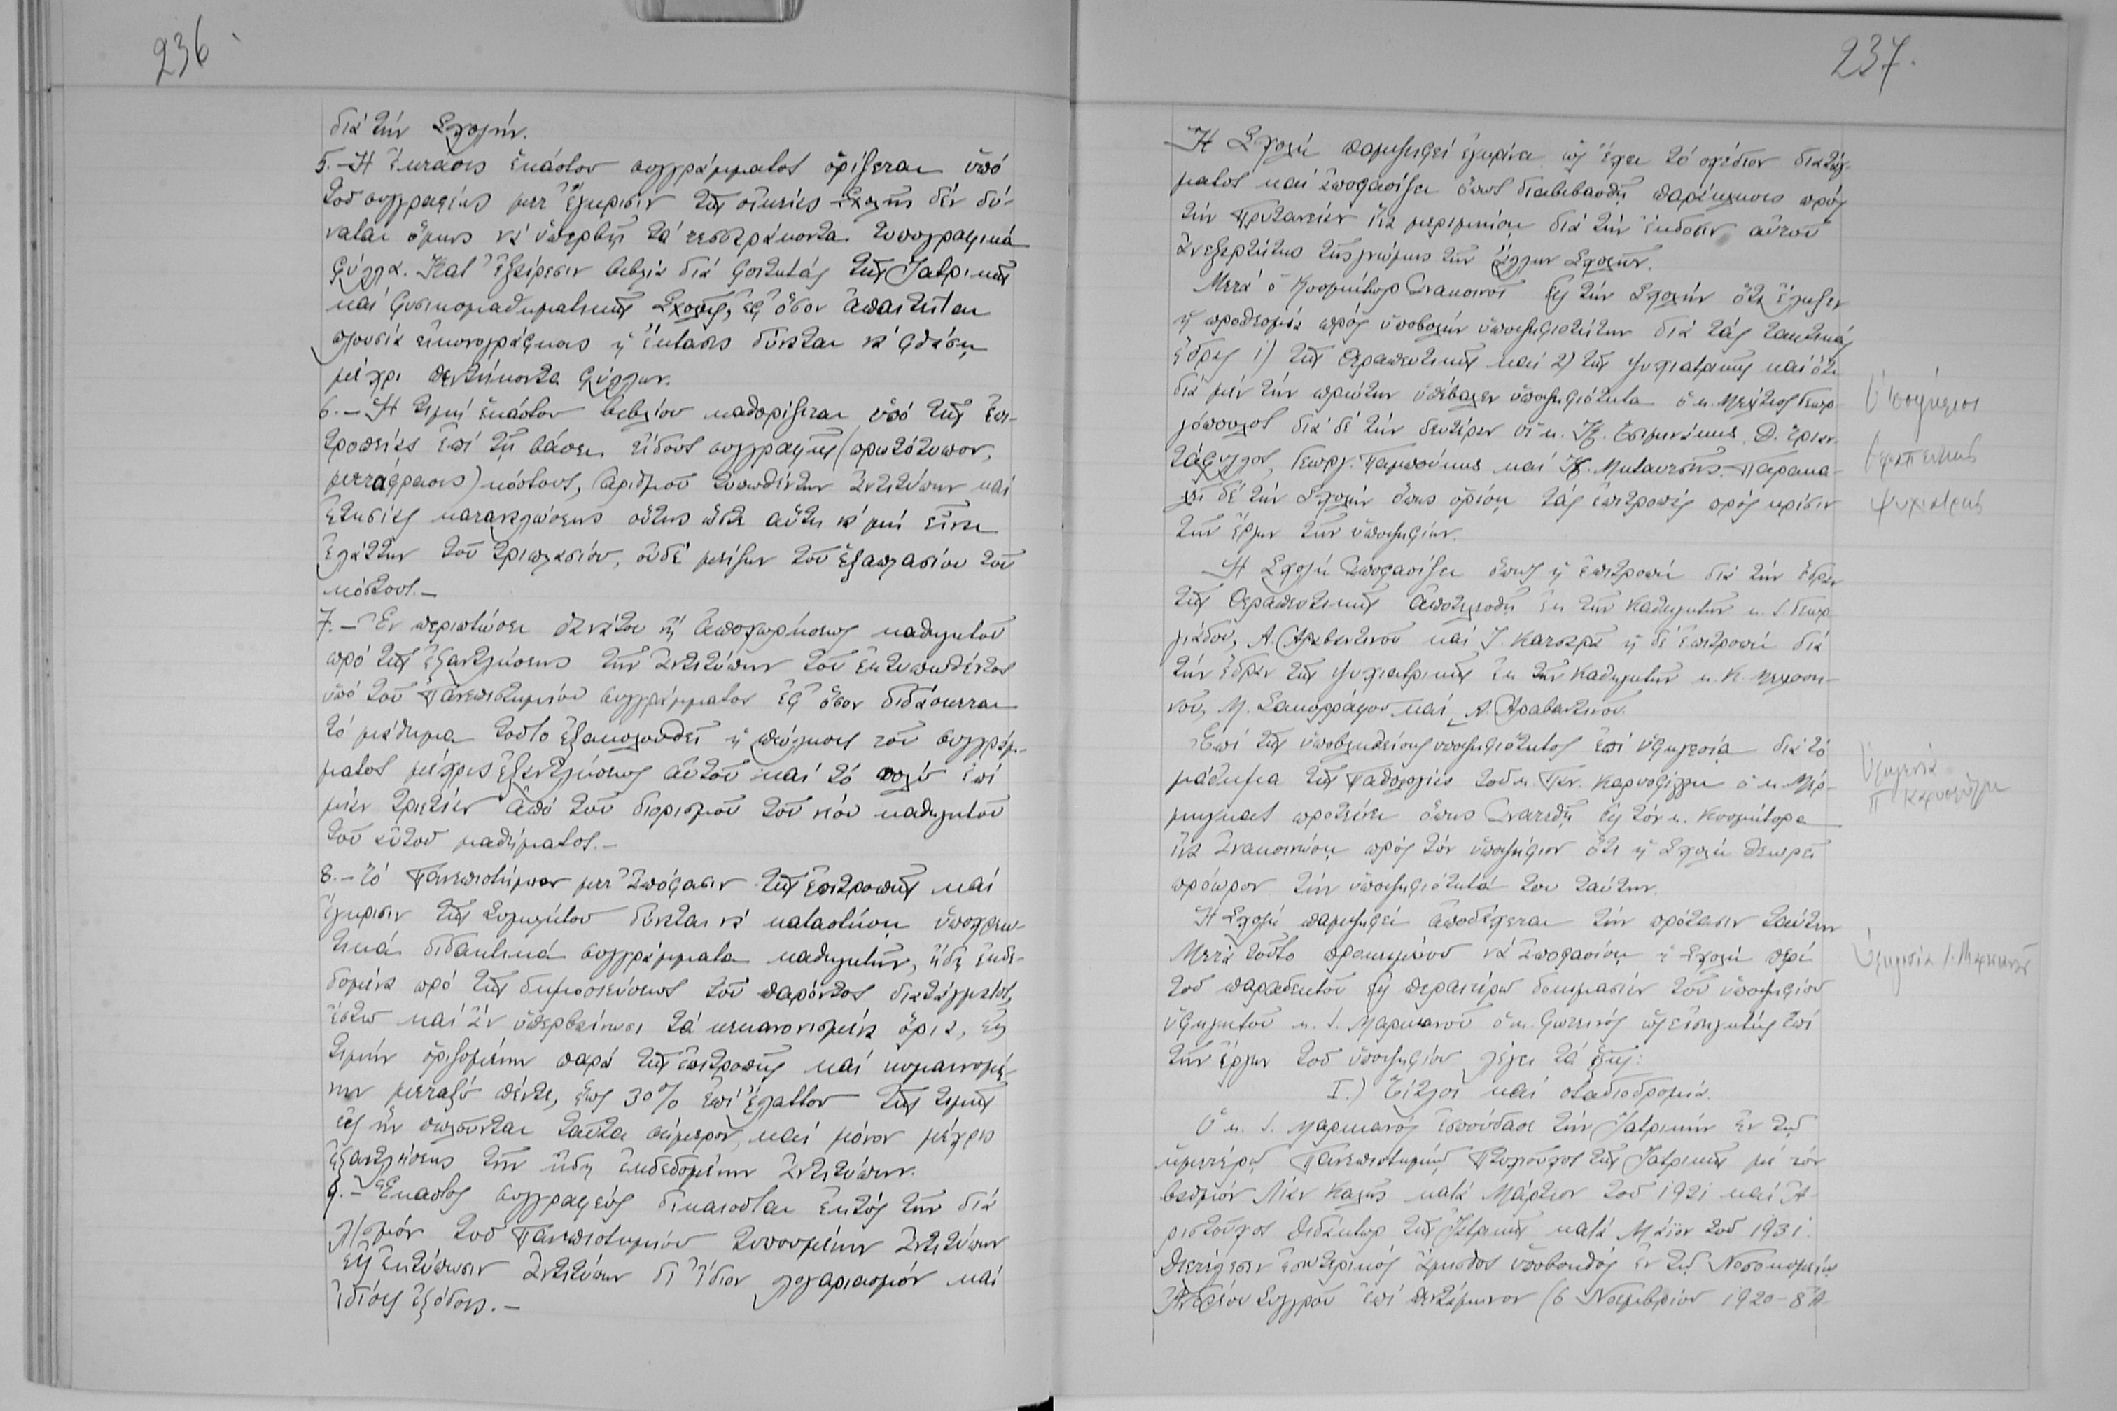 236
διὰ τὴν Σχολήν.
5.- Ἡ ἔκτασις ἑκάστου συγγράμματος ὁρίζεται ὑπὸ
τοῦ συγγραφέως μετ' ἔγκρισιν τῆς οἰκείας Σχολῆς δὲν δύ-
ναται ὅμως νὰ ὑπερβῇ τὰ τεσσαράκοντα τυπογραφικὰ
φύλλα. Κατ' ἐξαίρεσιν βιβλία διὰ φοιτητὰς τῆς Ἰατρικῆς
καὶ Φυσικομαθηματικῆς Σχολῆς, ἐφ' ὅσον ἀπαιτεῖται
πλουσία εἰκονογράφησις ἡ ἔκτασις δύναται νὰ φθάσῃ
μέχρι πεντήκοντα φύλλων.
6.- Ἡ τιμὴ ἑκάστου βιβλίου καθορίζεται ὑπὸ τῆς ἐπι-
τροπείας ἐπὶ τῇ βάσει εἴδους συγγραφῆς (πρωτότυπον,
μετάφρασις) κόστους, ἀριθμοῦ τυπωθέντων ἀντιτύπων καὶ
ἐτησίας καταναλώσεως οὕτως ὥστε αὕτη νὰ μὴ εἶναι
ἐλάττων τοῦ τριπλασίου, οὐδὲ μείζων τοῦ ἑξαπλασίου τοῦ
κόστους.-
7.- Ἐν περιπτώσει θανάτου ἢ ἀποχωρήσεως καθηγητοῦ
πρὸ τῆς ἐξαντλήσεως τῶν ἀντιτύπων τοῦ ἐκτυπωθέντος
ὑπὸ τοῦ Πανεπιστημίου συγγράμματος ἐφ' ὅσον διδάσκεται
τὸ μάθημα τοῦτο ἐξακολουθεῖ ἡ πώλησις τοῦ συγγράμ-
ματος μέχρις ἐξαντλήσεως αὐτοῦ καὶ τὸ πολὺ ἐπὶ
μίαν τριετίαν ἀπὸ τοῦ διορισμοῦ τοῦ νέου καθηγητοῦ
τοῦ αὐτοῦ μαθήματος.-
8.- Τὸ Πανεπιστήμιον μετ' ἀπόφασιν τῆς ἐπιτροπῆς καὶ
ἔγκρισιν τῆς Συγκλήτου δύναται νὰ καταστήσῃ ὑποχρεω-
τικὰ διδακτικὰ συγγράμματα καθηγητῶν, ἤδη ἐκδε-
δομένα πρὸ τῆς δημοσιεύσεως τοῦ παρόντος διατάγματος,
ἔστω καὶ ἂν ὑπερβαίνωσι τὰ κεκανονισμένα ὅρια, εἰς
τιμὴν ὁριζομένην παρὰ τῆς ἐπιτροπῆς καὶ κυμαινομέ-
νην μεταξὺ πέντε, ἕως 30% ἐπὶ ἔλαττον τῆς τιμῆς
εἰς ἣν πωλοῦνται ταῦτα σήμερον, καὶ μόνον μέχρις
ἐξαντλήσεως τῶν ἤδη ἐκδεδομένων ἀντιτύπων.
9.- Ἕκαστος συγγραφεὺς δικαιοῦται ἐκτὸς τῶν διὰ
λ/σμὸν τοῦ Πανεπιστημίου τυπουμένων ἀντιτύπων
εἰς ἐκτύπωσιν ἀντιτύπων δι' ἴδιον λογαριασμὸν καὶ
ἰδίοις ἐξόδοις.-
237.
Ἡ Σχολὴ παμψηφεὶ ἐγκρίνει ὡς ἔχει τὸ σχέδιον διατάγ-
ματος καὶ ἀποφασίζει ὅπως διαβιβασθῇ παράκλησις πρὸς
τὴν Πρυτανείαν ἵνα μεριμνήσῃ διὰ τὴν ἔκδοσιν αὐτοῦ
ἀνεξαρτήτως τῆς γνώμης τῶν ἄλλων Σχολῶν.
Μετὰ ὁ Κοσμήτωρ ἀνακοινοῖ εἰς τὴν Σχολὴν ὅτι ἔληξεν
ἡ προθεσμία πρὸς ὑποβολὴν ὑποψηφιοτήτων διὰ τὰς τακτικὰς
ἕδρας 1) τῆς Θεραπευτικῆς καὶ 2) τῆς Ψυχιατρικῆς καὶ ὅτι
διὰ μὲν τὴν πρώτην ὑπέβαλεν ὑποψηφιότητα ὁ κ. Μελέτιος Γεωρ-
γόπουλος διὰ δὲ τὴν δευτέραν οἱ κ. Δ. Τριαν-
τάφυλλος, Γεώργ. Παμπούκης καὶ Παρακα-
λεῖ δὲ τὴν Σχολὴν ὅπως ὁρίσῃ τὰς ἐπιτροπὰς πρὸς κρίσιν
τῶν ἔργων τῶν ὑποψηφίων.
Ἡ Σχολὴ ἀποφασίζει ὅπως ἡ ἐπιτροπὴ διὰ τὴν ἕδραν
τῆς Θεραπευτικῆς ἀποτελεσθῇ ἐκ τῶν καθηγητῶν κ. Ι. Γεωρ-
γιάδου, Α. Ἀραβαντινοῦ καὶ Ι. Κατσαρᾶ ἡ δὲ ἐπιτροπὴ διὰ
τὴν ἕδραν τῆς Ψυχιατρικῆς ἐκ τῶν καθηγητῶν κ. Κ. Μερμηγκ-
νου, Μ. Σακορράφου καὶ Α. Ἀραβαντινοῦ.
Ἐπὶ τῆς ὑποβληθείσης ὑποψηφιότητος ἐπὶ ὑφηγεσίᾳ διὰ τὸ
μάθημα τῆς Παθολογίας τοῦ κ. Παν. Καρυοφύλλη ὁ κ. Μέρ-
μηγκας προτείνει ὅπως ἀνατεθῇ εἰς τὸν κ. Κοσμήτορα
ἵνα ἀνακοινώσῃ πρὸς τὸν ὑποψήφιον ὅτι ἡ Σχολὴ θεωρεῖ
πρόωρον τὴν ὑποψηφιότητά του ταύτην.
Ἡ Σχολὴ παμψηφεὶ ἀποδέχεται τὴν πρότασιν ταύτην
Μετὰ τοῦτο προκειμένου νὰ ἀποφασίσῃ ἡ Σχολὴ περὶ
τοῦ παραδεκτοῦ εἰς περαιτέρω δοκιμασίαν τοῦ ὑποψηφίου
ὑφηγητοῦ κ. Ι. Μαρκιανοῦ ὁ κ. Φωτεινὸς ὡς εἰσηγητὴς ἐπὶ
τῶν ἔργων τοῦ ὑποψηφίου λέγει τὰ ἑξῆς:
Ι.) Τίτλοι καὶ σταδιοδρομία.
Ὁ κ. Ι. Μαρκιανὸς ἐσπούδασε τὴν Ἰατρικὴν ἐν τῷ
ἡμετέρῳ Πανεπιστημίῳ Πτυχιοῦχος τῆς Ἰατρικῆς μὲ τὸν
βαθμὸν Λίαν Καλῶς κατὰ Μάρτιον τοῦ 1921 καὶ Ἀ-
ριστοῦχος Διδάκτωρ τῆς Ἰατρικῆς κατὰ Μάϊον τοῦ 1931.
Διετέλεσεν ἐσωτερικὸς ἄμισθος ὑποβοηθὸς ἐν τῷ Νοσοκομείῳ
Ἀνδρέου Συγγροῦ ἐπὶ πεντάμηνον (6 Νοεμβρίου 1920-8 Ἀ-
Ὑποψήφιοι
Θεραπευτικῆς
Ψυχιατρικῆς
Ὑφηγεσία
Π. Καρυοφύλλη
Ὑφηγεσία Ι. Μαρκιανοῦ